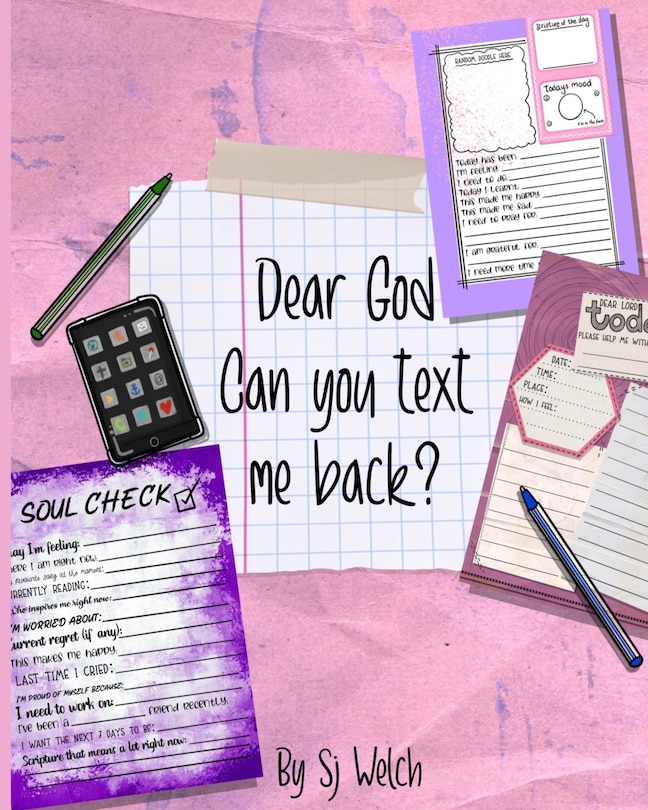 Dear God
Can you text
me back?
By Sj Welch
RANDOM DOODLE HERE
Scripture of the day
Todays mood
Fill in the face
Today has been:
I'm feeling:
I need to do:
Today I learnt:
This made me happy:
This made me sad:
I need to pray for:
I am grateful for:
I need more time
DEAR LORD
tod
PLEASE HELP ME WITH
DATE:
TIME:
PLACE:
HOW I FEEL:
SOUL CHECK
ay I'm feeling:
ere I am right now:
favourite song at the moment:
URRENTLY READING:
Who inspires me right now:
I'M WORRIED ABOUT:
urrent regret (if any):
This makes me happy:
LAST TIME I CRIED:
I'M PROUD OF MYSELF BECAUSE:
I need to work on:
I've been a friend recently.
I WANT THE NEXT 7 DAYS TO BE:
Scripture that means a lot right now: